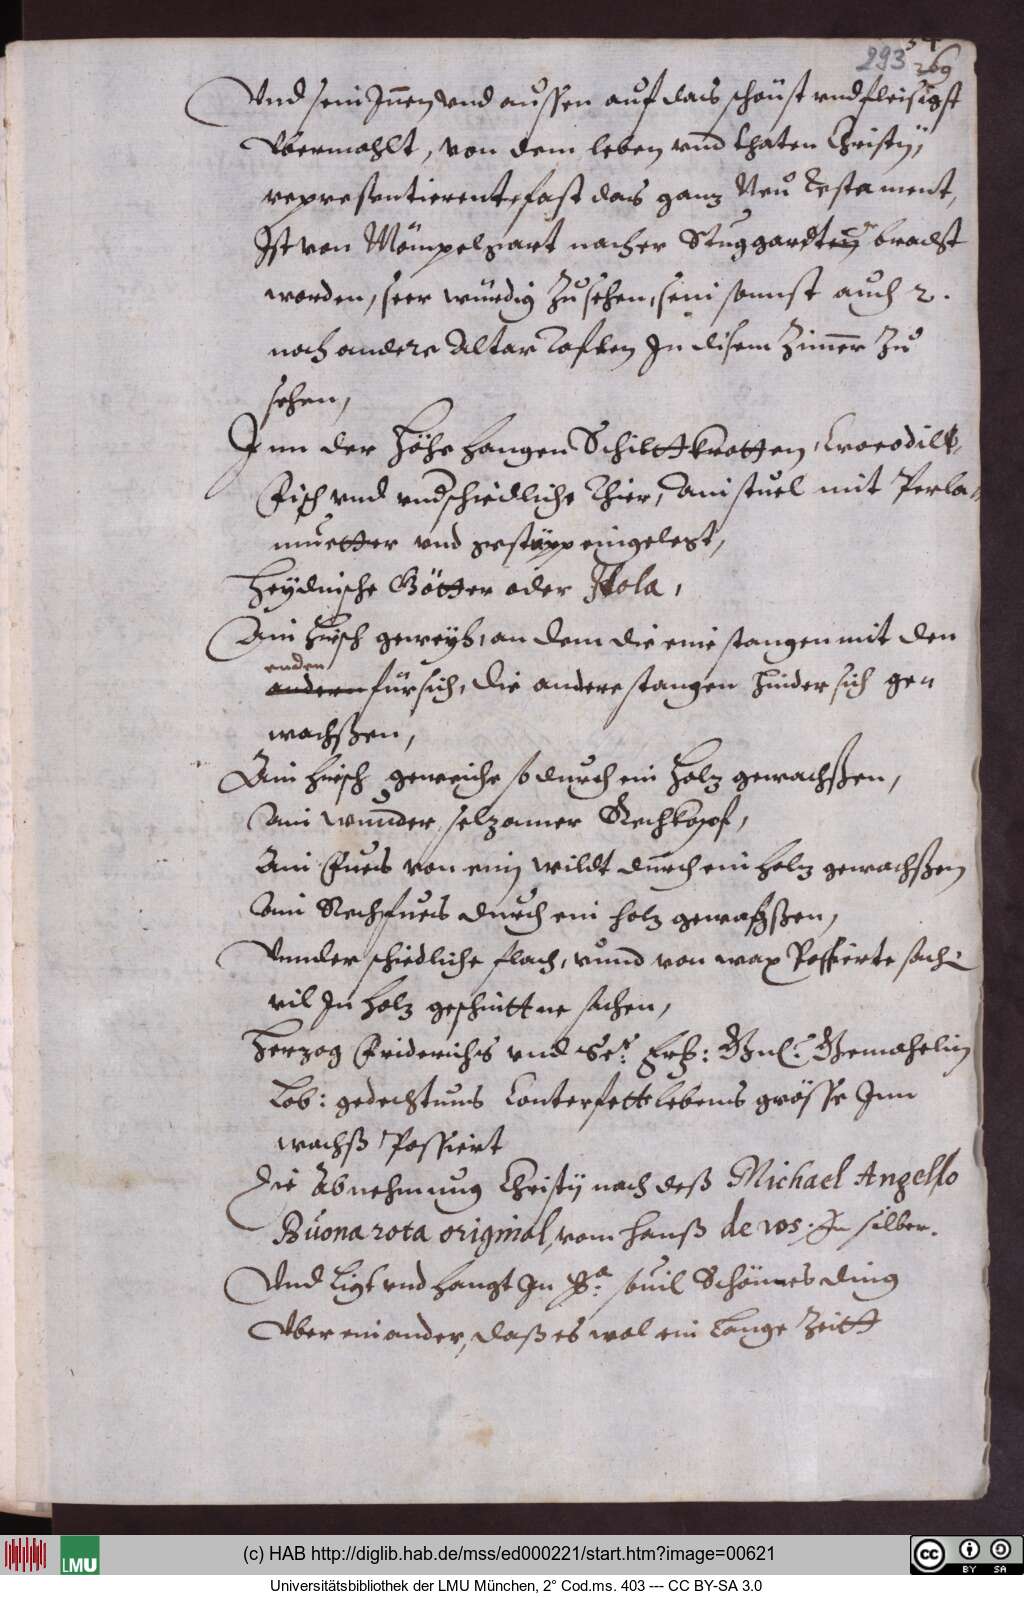 293 269
Vnd sein Innen vnd aussen auf das schönst vnd fleisigst
Vbermahlt, von dem leben vnd thaten Christÿ,
representierent, fast das ganz Neu Testament,
Ist von Mömpelgart nacher Stuggardten bracht
worden, seer würdig zusehen, sein sonnst auch 2.
noch andere Altar Taflen In disem Zimer zu
sehen,
Inn der Höhe hangen Schilttkrotten, Crocodill,
Fisch vnd vndschiedliche Thier, Ain stuel mit Perla
muetter vnd eingelegt,
Heydnische Götter oder Idola,
Ain Hirsch geweÿh, an dem die eine stangen mit den
enden
andern fürsich, die andere stangen hindersich ge
wachsßen,
Ain hirsch geweiche so durch ein holz gewachsßen,
Ain wunder selzamer Rechkopf,
Ain Fues von eim wildt durch ein holz gewachsßen
Ain Rechfues durch ein holz gewachsßen,
Vnnderschiedliche flach, vnnd von wax Possierte sach
vil In holz geschnittne sachen,
Herzog Friderichs vnd Sr. Frh: Gemahelin
Lob: gedechtnus Conterfett lebens grösse Inn
wachß Possiert
Die Abnehmung Christÿ nach deß Michael Angello
Buonarota original, vom Hanß de vos. In silber.
Vnd ligt vnd hangt In souil Schönnes ding
Vber einander, daß es wol ein lange Zeitt
(c) HAB http://diglib.hab.de/mss/ed000221/start.htm?image=00621
LMU
BY SA
Universitätsbibliothek der LMU München, 2° Cod.ms. 403 --- CC BY-SA 3.0